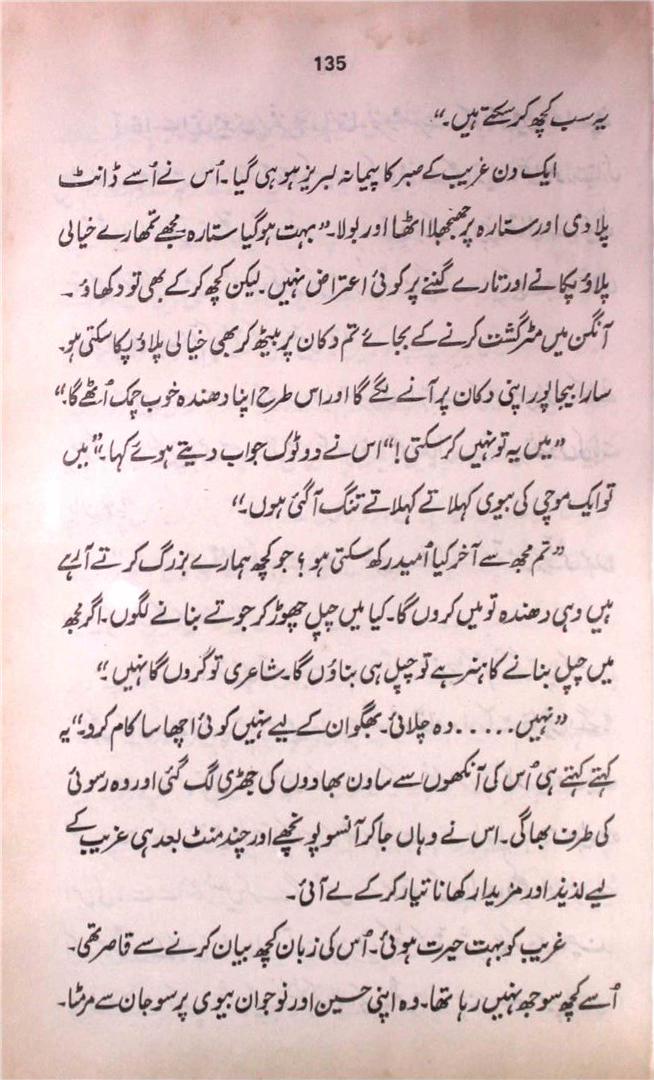 135
یہ سب کچھ کر سکتے ہیں۔“
ایک دن غریب کے صبر کا پیمانہ لبریز ہو ہی گیا۔ اُس نے اُسے ڈانٹ
پلا دی اور ستارہ پر جھنجھلا اٹھا اور بولا۔ ”بہت ہو گیا ستارہ مجھے تمھارے خیالی
پلاؤ پکانے اور تارے گننے پر کوئی اعتراض نہیں۔ لیکن کچھ کر کے بھی تو دکھاؤ۔
آنگن میں مٹر گشت کرنے کے بجائے تم دکان پر بیٹھ کر بھی خیالی پلاؤ پکا سکتی ہو۔
سارا بیجاپور اپنی دکان پر آنے لگے گا اور اس طرح اپنا دھندہ خوب چمک اُٹھے گا۔“
”میں یہ تو نہیں کر سکتی!“ اس نے دو ٹوک جواب دیتے ہوئے کہا۔ ”میں
تو ایک موچی کی بیوی کہلاتے کہلاتے تنگ آ گئی ہوں۔“
”تم مجھ سے آخر کیا اُمید رکھ سکتی ہو؟ جو کچھ ہمارے بزرگ کرتے آ رہے
ہیں وہی دھندہ تو میں کروں گا۔ کیا میں چپل چھوڑ کر جوتے بنانے لگوں۔ اگر مجھ
میں چپل بنانے کا ہنر ہے تو چپل ہی بناؤں گا۔ شاعری تو گروں گا نہیں۔“
”نہیں..... وہ چلائی۔ بھگوان کے لیے نہیں کوئی اچھا سا کام کرو۔“ یہ
کہتے کہتے ہی اُس کی آنکھوں سے ساون بھادوں کی جھڑی لگ گئی اور وہ رسوئی
کی طرف بھاگی۔ اس نے وہاں جا کر آنسو پونچھے اور چند منٹ بعد ہی غریب کے
لیے لذیذ اور مزیدار کھانا تیار کر کے لے آئی۔
غریب کو بہت حیرت ہوئی۔ اُس کی زبان کچھ بیان کرنے سے قاصر تھی۔
اُسے کچھ سوجھ نہیں رہا تھا۔ وہ اپنی حسین اور نوجوان بیوی پر سو جان سے مرمٹا۔